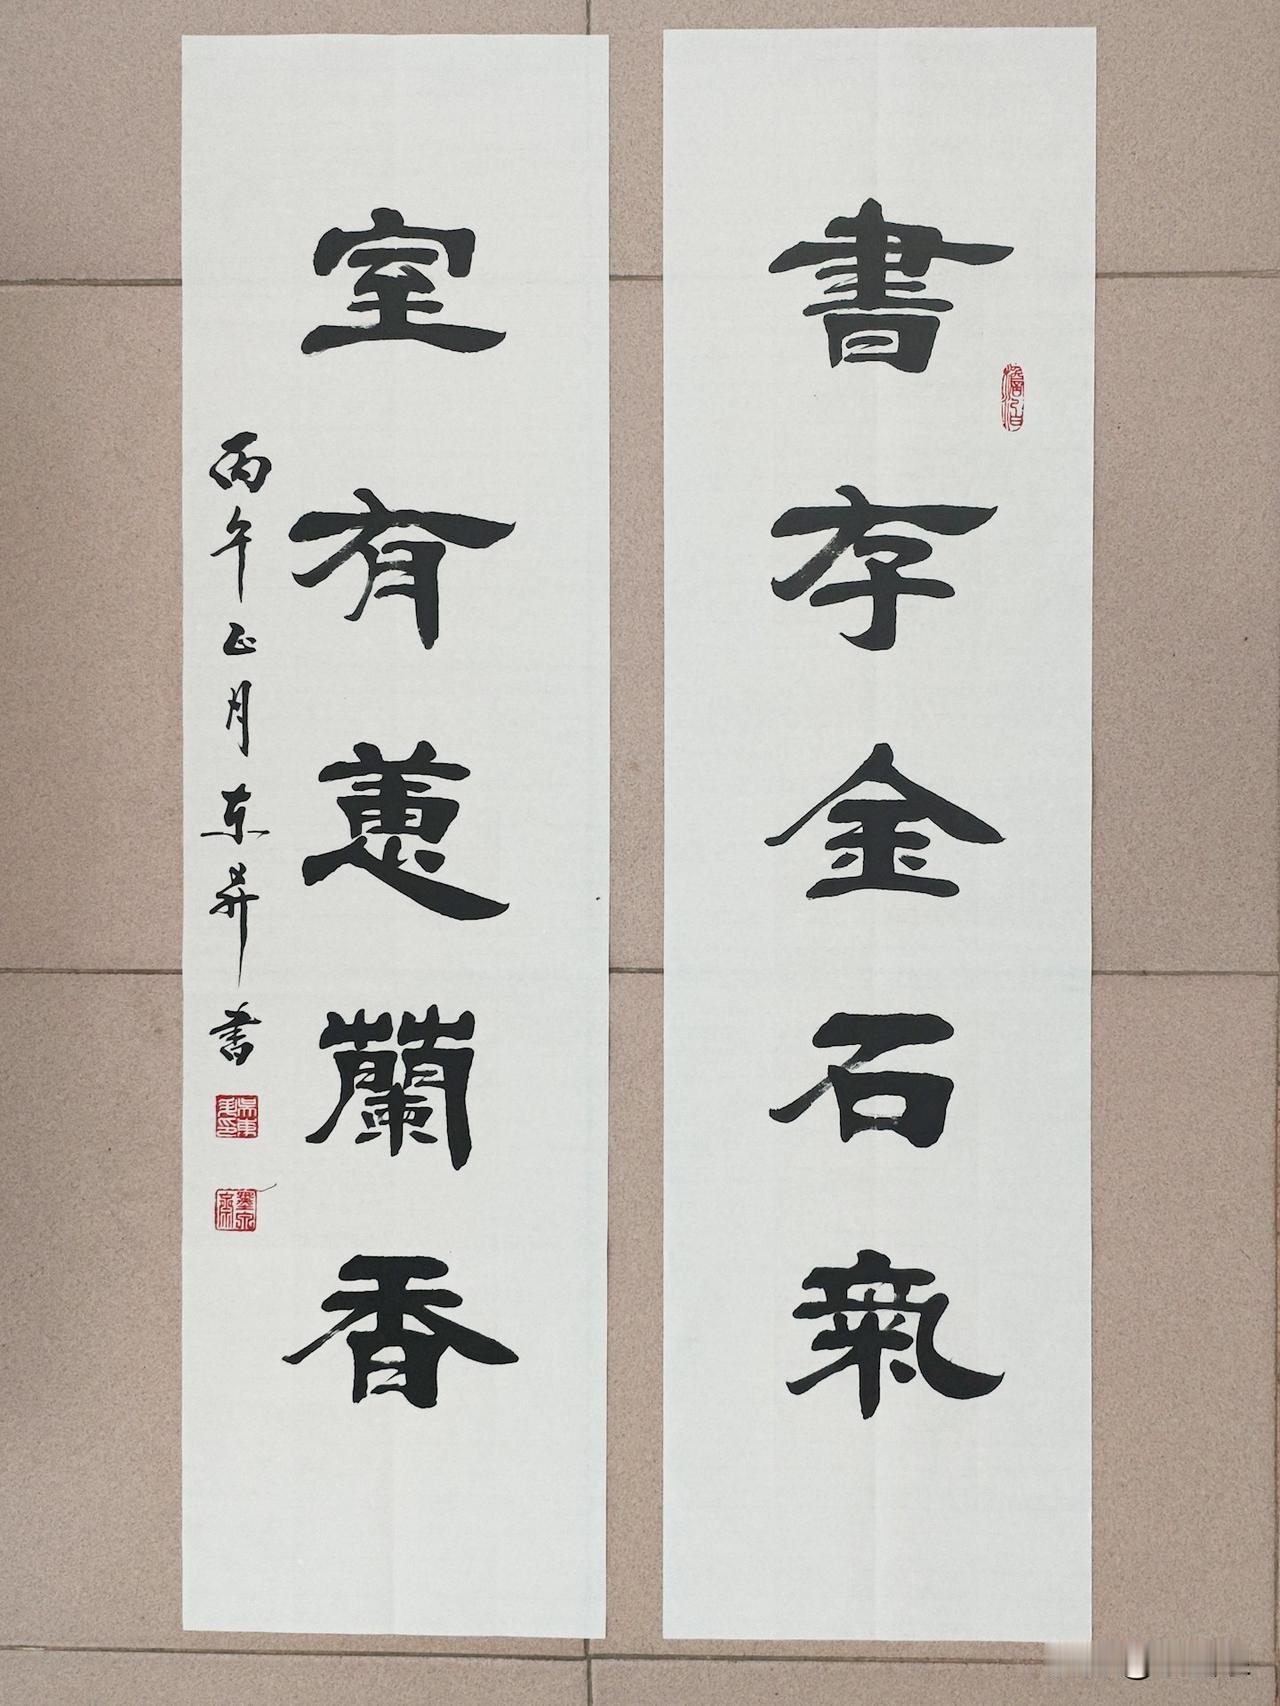 書存金石氣
室有蕙蘭香
丙午正月東昇書